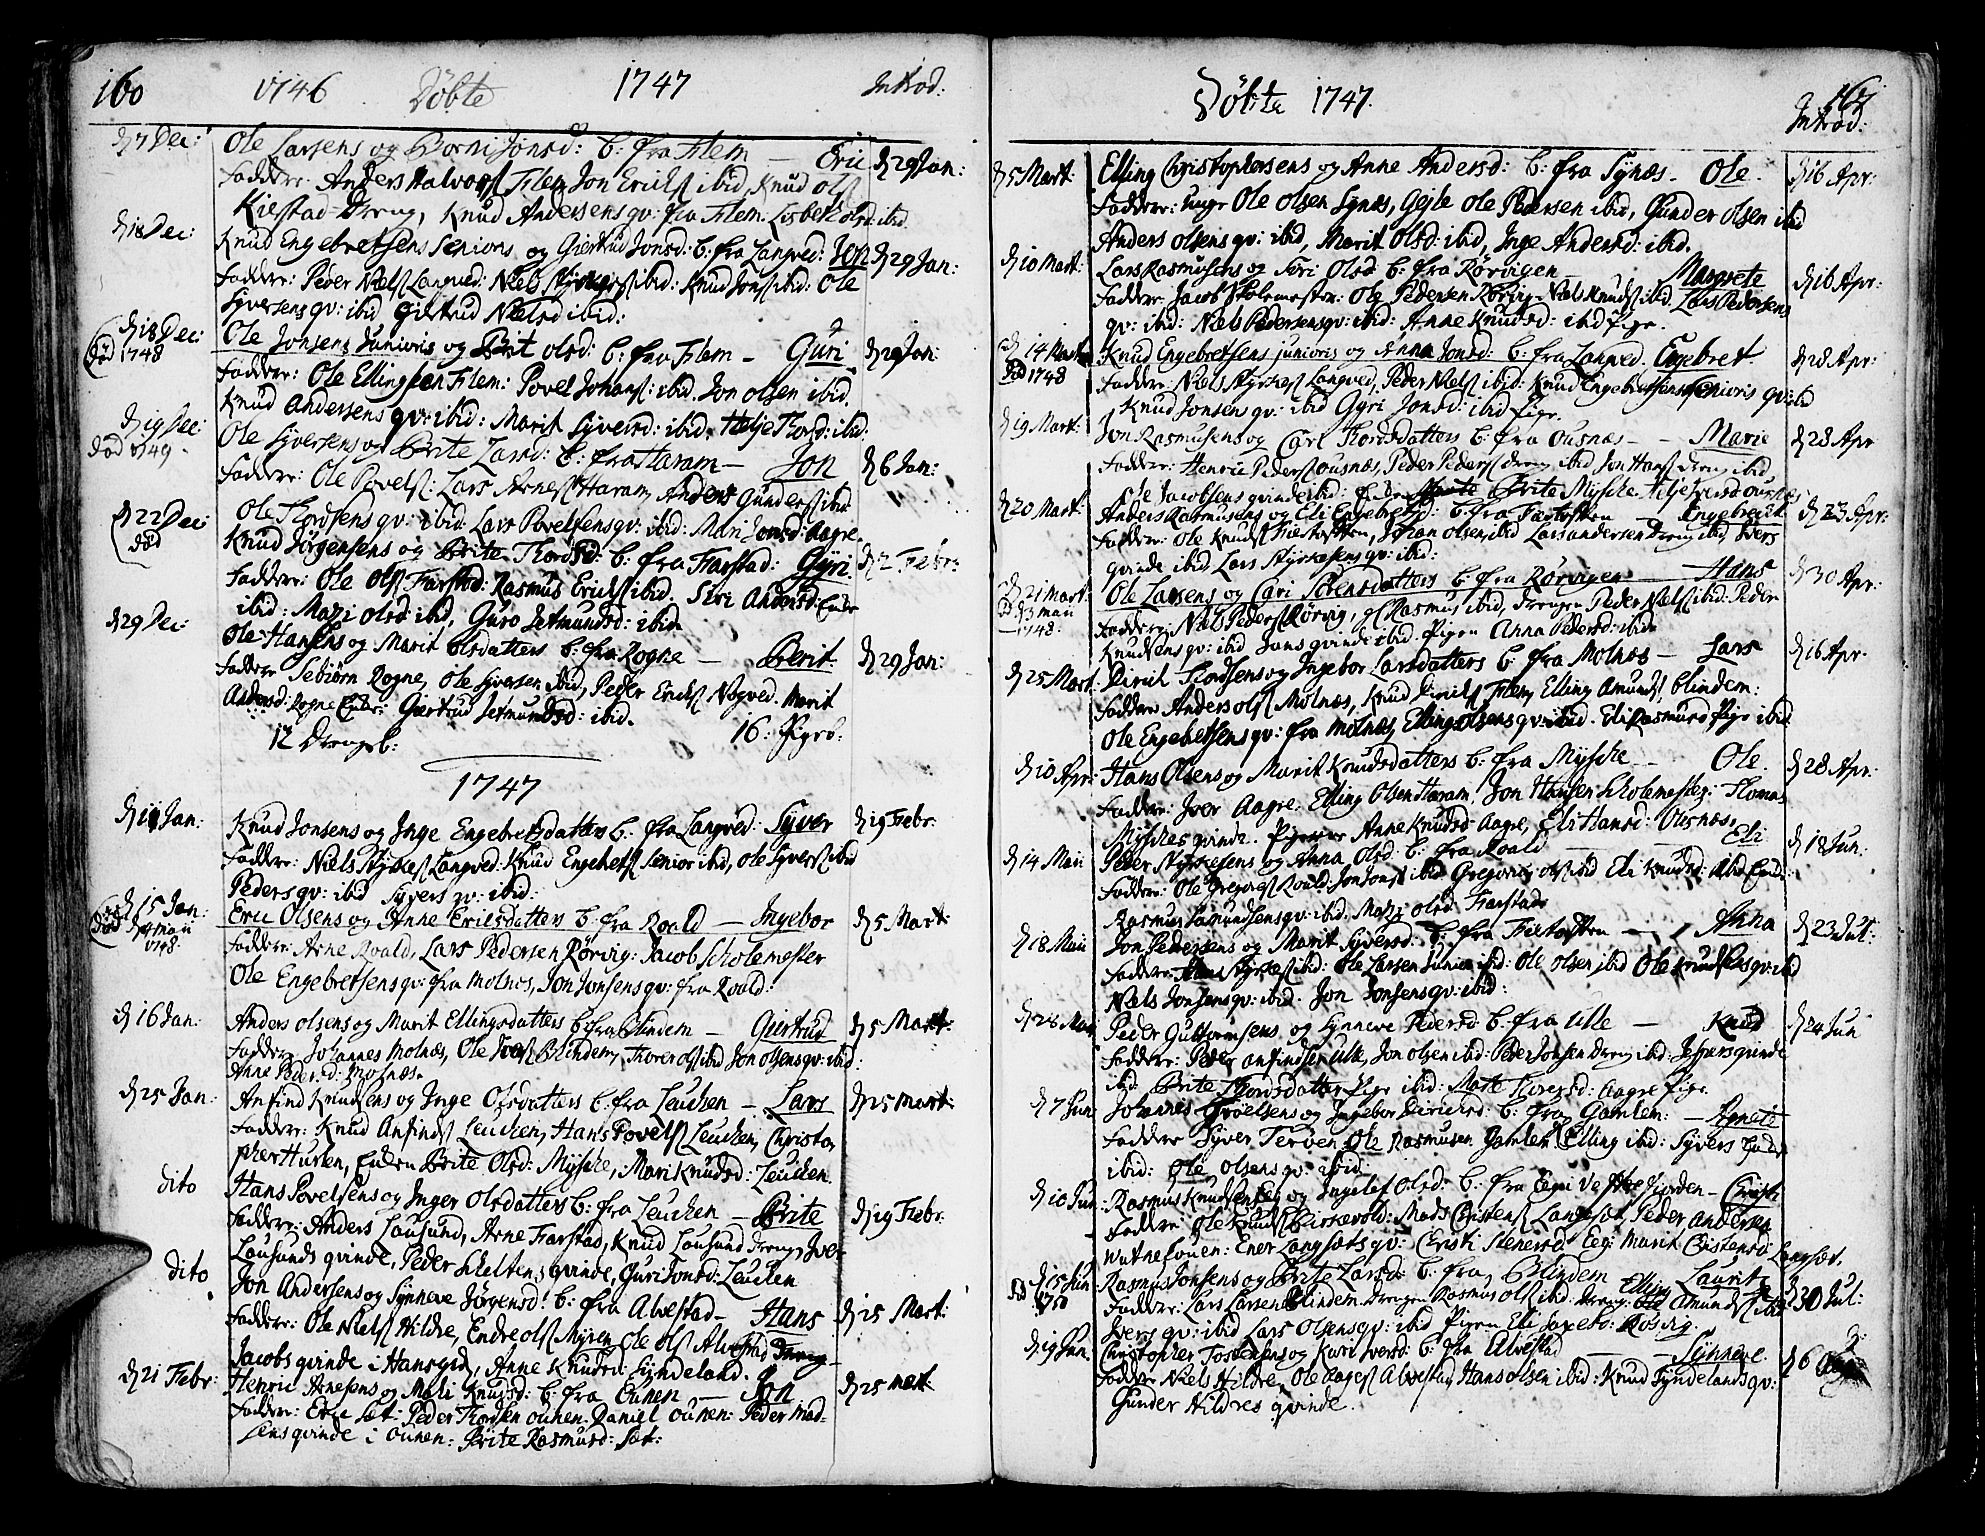 160 1746 Döbte 1747 Introd:
d 7 Dec: Ole Larsens og Borni Jonsd: b: fra Flem — Eric d 29 Jan:
Faddere: Anders Halvors Flem, Jon Ericks ibid, Knud Ols
Kiestad Dreng, Knud Andersens qv: fra Flem. Lisbeth Olsd ibid
d 18 Dec: Knud Engebretsens Senioris og Giertrud Jonsd: b: fra Langved: Jon d 29 Jan:
Faddere: Peder Niels Langved: Niels ibid: Knud Jons ibid: Ole
Syversens qv: ibid Giertrud Nielsd ibid:
d 18 Dec: Ole Jonsens Junioris og Brit Olsd: b: fra Flem — Guri d 29 Jan:
död 1748
Faddere: Ole Ellingsen Flem: Povel Johans: ibid. Jon Olsen ibid.
Knud Andersens qv: ibid: Marit Syversd: ibid. Helje Thorsd: ibid:
d 19 Dec: Ole Syversens og Brite Larsd: b: fra Haram — Jon d 6 Jan:
död 1749
Faddere: Ole Povels: Lars Arnes Haram, Anders Gunders ibid
Ole Thordsens qv: ibid Lars Povelsens qv: ibid: Mari Jonsd: Aagre.
d 22 Dec: Knud Jörgensens og Brite Thordsd: b: fra Farstad: Gyri. d 2 Febr:
död
Faddere: Ole Ols Farstad: Rasmus Ericks ibid. Siri Andersd: Enke
ibid: Mazi Olsd: ibid, Guro Setmundsd: ibid
d 29 Dec: Ole Hansens og Marit Olsdatters b: fra Rogne — Berit d 29 Jan:
Faddere Sebiörn Rogne, Ole Syversen ibid, Peder Ericks Nogved. Marit
Andersd: Rogne Enke: Giertrud Setmundsd: ibid.
12 Drengeb: 16: Pigeb:
1747
d 11 Jan: Knud Jonsens og Inge Engebretsdatters b: fra Langved: Syver d 19 Febr:
Faddere: Niels Langved: Knud Engebrets Senior ibid, Ole Syvers ibid
Peders qv: ibid Syvers qv: ibid:
d 15 Jan: Eric Olsens og Anne Ericsdatters b: fra Roald — Ingebor d 5 Mart:
död d 4 Maii
1748
Faddere: Arne Roald, Lars Pedersen Rörvig: Jacob Scholemester
Ole Engebretsens qv: fra Molnes, Jon Jonsens qv: fra Roald:
d 16 Jan: Anders Olsens og Marit Ellingsdatters b: fra Blindem — Giertrud d 5 Mart:
Faddere Johannes Molnæs, Ole Blindem, Thore Ols ibid Jon Olsens qv: ibid:
Anne Pedersd: Molnæs.
d 25 Jan: Anfind Knudsens og Inge Olsdatters b: fra Leuchen — Lars d 25 Mart:
Faddere: Knud Anfinds Leuchen, Hans Povels Leuchen, Christo,
pher Hurlen, Enken Brite Olsd: Myhlche, Mari Knudsd: Leuchen.
dito Hans Povelsens og Inger Olsdatters b: fra Leuchen — Brite d 19 Febr:
Faddere: Anders Lausund, Arne Farstad, Knud Lausund Dreng, Iver
Lausunds qvinde, Peder Scheltens qvinde, Guri Jonsd: Leuchen
dito Jon Andersens og Synneve Jörgensd: b: fra Alvestad — Hans d 25 Mart:
Faddere: Ole Niels Hildre, Endre Ols Myren, Ole Ols Alvestad Dreng
Jacobs qvinde i Hansgrd, Anne Knudsd: Synneland.
d 21 Febr: Henric Arnesens og Mali Knudsd: b: fra Eunen — Jon d 25 Mart
Faddere: Eric Sæt: Peder Thordsen Ounen. Daniel Ounen: Peder Mad-
sens qvinde i Ounen: Brite Rasmusd: Sæt:
Döbte 1747. 161
Introd:
d 5 Mart: Elling Christophersens og Anne Andersd: b: fra Synæs. Ole. d 16 Apr:
Faddere: unge Ole Olsen Synæs, Ole Pedersen ibid, Gunder Olsen ibid
Anders Olsens qv: ibid, Marit Olsd: ibid, Inge Andersd: ibid.
d 10 Mart: Lars Rasmusens og Siri Olsd b: fra Rörvigen — Margrete d 16 Apr:
Faddere: Jacob Skolemester: Ole Pedersen Rörvig Niels Knuds ibid. Lars Pedersens
qv: ibid: Niels Pedersens qv: ibid: Anne Knudsd: ibid Pige.
d 14 Mart Knud Engebretsens junioris og Anna Jonsd: b: fra Langved. Engebret d 28 Apr:
död 1748
Faddere: Niels Langved, Peder Niels ibid: Knud Engebretsens senioris qv: ibid
Knud Jonsens qv: ibid Gyri Jonsd: ibid Pige.
d 19 Mart: Jon Rasmusens og Cari Thordsdatters b: fra Ousnæs — Marie d 28 Apr
Faddere: Henric Peders Ousnæs, Peder Peders dreng ibid, Jon Hans dreng ibid
Ole Jacobsens qvinde ibid: Enken Brite Myhlche. Ousnæs
d 20 Mart: Anders Rasmusens og Eli Engebretsd: b: fra — Engebrecht d 23 Apr:
Faddere: Ole Knuds, Johan Olsen ibid Lars Andersen Dreng ibid Ivers
qvinde ibid Lars qv: ibid:
d 21 Mart: Ole Larsens og Cari Sörensdatters b: fra Rörvigen — Hans d 30 Apr:
d 3 Maii
1748:
Faddere: Niels Peders Rörvig, Rasmus ibid, Drengen Peder Niels ibid: Peder
Knudsens qv: ibid Jans qvinde ibid. Pigen Anna Pedersd: ibid
d 25 Mart. Dirich Thordsens og Ingebor Larsdatters b: fra Molnæs — Lars d 16 Apr.
Faddere Anders Ols Molnæs, Knud Dirichs Flem, Elling Amunds: Blindem:
Ole Engebretsens qv: fra Molnes, Elling Olsens qv: ibid. Eli Rasmusd Pige ibid
d 10 Apr: Hans Olsens og Marit Knudsdatters b: fra Myhlche — Ole. d 28 Apr:
Faddere: Iver Aagre. Elling Olsen Haram, Jon Hansen Scholemester: Thomas
Myhlches qvinde. Anne Knudsd Aagre, Eli Hansd: Ousnæs,
d 14 Maii Peder og Anna Olsd: b: fra Roald — Eli d 18 Jun:
Faddere: Ole Gregors Roald: Jon Jons ibid Gregorius Ols ibid Eli Knudsd: ibid Enke:
Rasmus Samundsens qv: ibid. Mazi Olsd Farstad
d 18 Maii Jon Pedersens og Marit Syversd: b: fra — Anna d 23 Jul:
Faddere: ibid: Ole Larsen Junior ibid: Ole Olsen ibid Ole Knudsens qv: ibid
Niels Jonsens qv: ibid: Jon Jonsens qv: ibid:
d 28 Maii Peder Guttormsens og Synneve Pedersd: b: fra Ulle — Knud d 24 Jun
Faddere: Peder Anfindsen Ulle, Jon Olsen ibid: Peder Jonsen Dreng ibid: Jespers qvinde
ibid: Brite Thordsdatter Pige ibid: Mari Thoresd: Aagre Pige.
d 7 Jun: Johannes og Ingebor Dirichsd: b: fra Gamlem: — Agnete
Faddere Syver Terøen, Ole Rasmusen Gamlem, Elling ibid: Syvers qvinde
ibid: Ole Olsens qv: ibid
d 10 Jun: Rasmus Knudsens Eeg og Ingelef Olsd: b: fra Eegn Ve Fiorden — Christi
Faddere: Ole Knuds: Mads Christens Langsæt, Peder Andersen
: Ener Langsæts qv: Christi Stenersd: Eeg: Marit Christensd Langsæt.
d 15 Jun Rasmus Jonsens og Brite Larsd: b: fra Blindem — Laurits d 30 Jul:
död 1750
Faddere: Lars Larsen Blindem: Drengen Rasmus Ols ibid: Dreng: Elling Amunds ibid
Ivers qv: ibid Lars Olsens qv: ibid Pigen Eli Jacobsd: Rörvig.
d 19 Jun. Christopher Tostensens og Kari Iversd: b: fra Alvestad — Sünneve. d 6
Faddere Niels Hildre, Ole Aages Alvestad, Hans Olsen ibid: Knud Synelands qv:
Gunder Hildres qvinde.